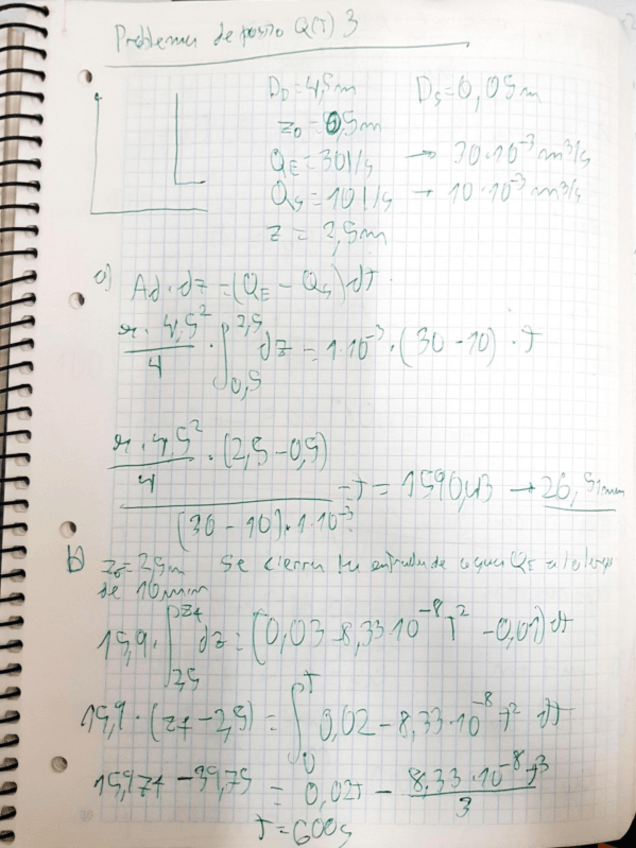 Problema depósito Q(T) 3
D_D=4,5m D_S=0,05m
z_0=0,5m
Q_E=30l/s → 30·10^-3 m^3/s
Q_S=10l/s → 10·10^-3 m^3/s
z=2,5m
a) Ad·dz=(Q_E-Q_S)dt
π·4,5^2/4 · ∫_0,5^2,5 dz = 1·10^-3·(30-10)·t
(π·4,5^2/4 · (2,5-0,5))/((30-10)·1·10^-3) = t = 1590,43 → 26,51min
b) z_0=2,5m Se cierra la entrada de agua Q_E a lo largo
de 10 min
15,9·∫_2,5^zt dz=(0,03-8,33·10^-8 t^2-0,01)dt
15,9·(zt-2,5)=∫_0^t 0,02-8,33·10^-8 t^2 dt
15,9zt-39,75 = 0,02t - 8,33·10^-8 t^3/3
t=600s